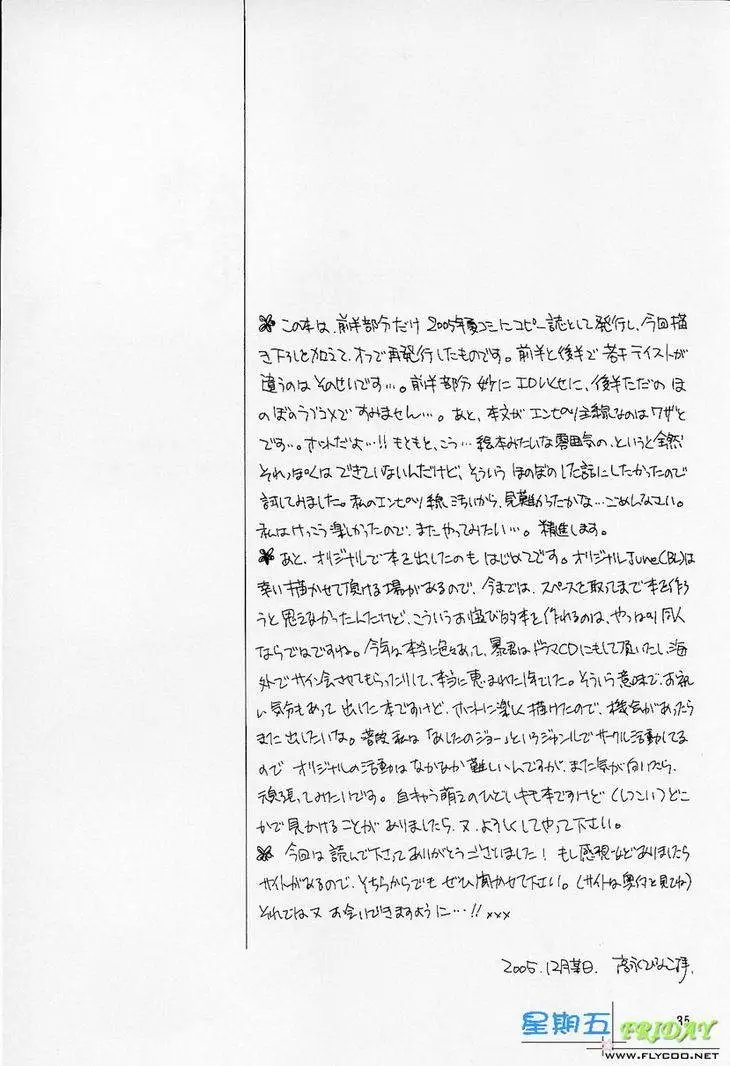 この本は、前半部分だけ 2005年夏コミにコピー誌として発行し、今回描
き下ろしを加えて、オフで再発行したものです。前半と後半で若干テイストが
違うのはそのせいです…。前半部分 妙にエロいくせに、後半ただのほ
のぼのラブコメですみません…。あと、本文がエンピツ主線なのはワザと
です…。ホントだよ…!! もともと、こう…絵本みたいな雰囲気の、というと全然
それっぽくは できていないんだけど、そういう ほのぼのした話にしたかったので
試してみました。私のエンピツ線 汚いから、見難かったかな…ごめんなさい。
私はけっこう楽しかったので、またやってみたい…。精進します。
あと、オリジナルで本を出したのも はじめてです。オリジナルJune(BL)は
幸い描かせて頂ける場があるので、今までは、スペースを取ってまで本を作ろ
うと思えなかったんだけど、こういうお遊び的本を作れるのは、やっぱり同人
ならではですね。今年は本当に色々あって、暴君はドラマCDにもして頂いたし、海
外でサイン会させてもらったりして、本当に恵まれた1年でした。そういう意味で、お祝
い気分もあって 出した本ですけど、ホントに楽しく描けたので、機会があったら
また出したいな。普段 私は「あしたのジョー」というジャンルでサークル活動してる
ので オリジナルの活動はなかなか難しいんですが、また気が向いたら、
頑張ってみたいです。自キャラ萌えのひどいキモ本ですけど(しつこい)どこ
かで見かけることが ありましたら、又、よろしくしてやって下さい。
今回は読んで下さって ありがとうございました! もし感想などありましたら
サイトがあるので、そちらからでも ぜひ聞かせて下さい。(サイトは奥付を見てね)
それでは又 お会いできますように…!! xxx
2005.12月某日. 高永ひなこ拝.
35
星期五 FRIDAY
WWW.FLYCOO.NET